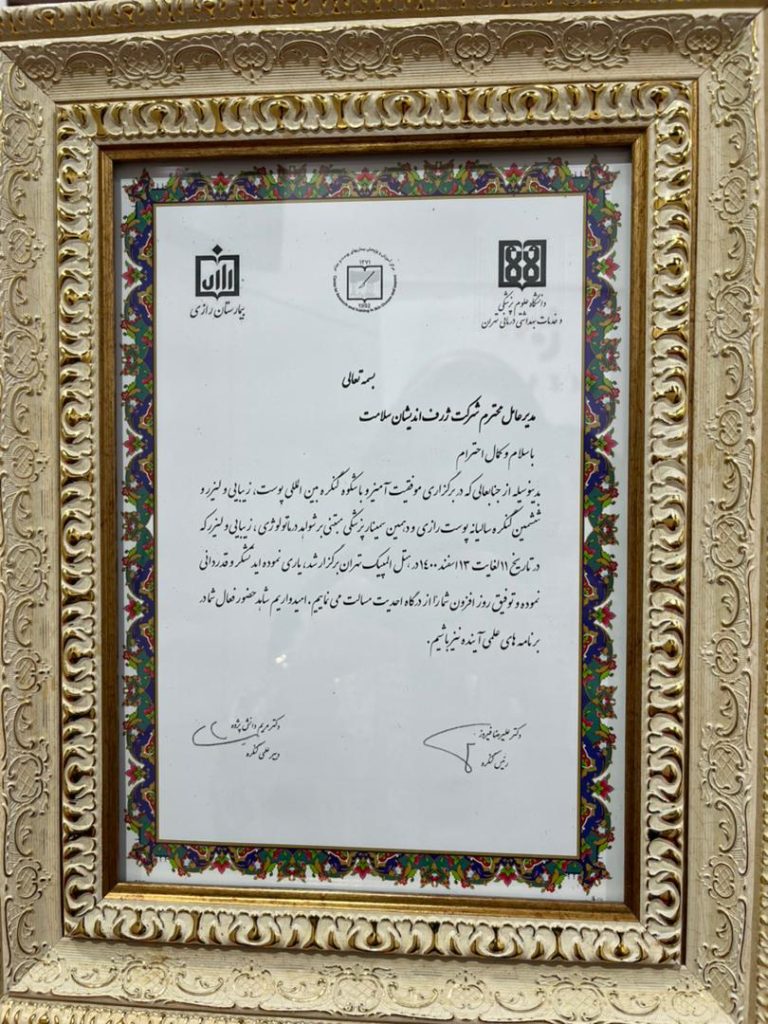 رازی
بیمارستان رازی
۱۲۷۱
1993
دانشگاه علوم پزشکی
و خدمات بهداشتی درمانی تهران
بسمه تعالی
مدیر عامل محترم شرکت ژرف اندیشان سلامت
با سلام و کمال احترام
بدینوسیله از جنابعالی که در برگزاری موفقیت آمیز و با شکوه کنگره بین المللی پوست، زیبایی و لیزر و
ششمین کنگره سالیانه پوست رازی و دهمین سمینار پزشکی مبتنی بر شواهد درماتولوژی، زیبایی و لیزر که
در تاریخ ۱۱ لغایت ۱۳ اسفند ۱۴۰۰ در هتل المپیک تهران برگزار شد، یاری نموده اید تشکر و قدردانی
نموده و توفیق روز افزون شما را از درگاه احدیت مسالت می نماییم. امیدواریم شاهد حضور فعال شما در
برنامه های علمی آینده نیز باشیم.
دکتر علیرضا فیروز
رئیس کنگره
دکتر مریم دانش پژوه
دبیر علمی کنگره